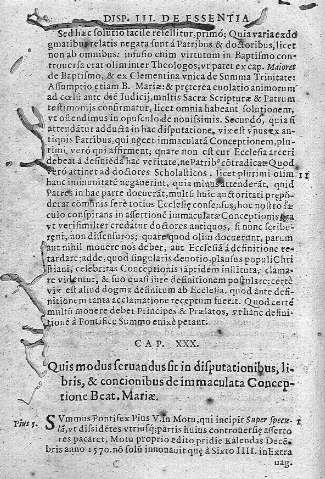 DISP. III. DE ESSENTIA
Sed hæc solutio facile refellitur, primo; Quia varia ex do
gmatibus relatis negata sunt à Patribus & doctoribus, licet
non ab omnibus: infusio enim virtutum in Baptismo con
trouersa etat olim inter Theologos, vt patet ex cap. Maiores
de Baptismo, & ex Clementina vnica de Summa Trinitate:
Assumptio etiam B. Mariæ: & præterea euolatio animarum
ad cœlū ante diē Iudicij, multis Sacræ Scripturæ & Patrum
testimonijs confirmatur, licet omnia habeant solutionem,
vt ostendimus in opusculo de nouissimis. Secundò, quia si
attendātur adducta in hac disputatione, vix est vnus ex an
tiquis Patribus, qui neget immaculatā Conceptionem, plu-
rimi verò qui affirment; quare non est cur Ecclesia arceri
debeat à definiēda hac veritate, ne Patribº cōtradicat. Quod
verò attinet ad doctores Scholasticos, licet plurimi olim
hanc immunitatē negauerint, quia minus attendebāt, quid
Patres in hac parte docuerāt, multis huic auctoritati præpō-
derat communis ferè totius Ecclesię consensus, hoc nostro sæ
culo conspirans in assertionē immaculatæ Conceptionis ita
vt verisimiliter credatur doctores antiquos, si nunc scribe-
rent, non dissensuros; quare quod olim docuerunt, parum
aut nihil mouere nos debet, aut Ecclesiā à definitione re
tardare; adde, quod singularis deuotio, plausus populi Chri
stiani, celebritas Conceptionis iāpridem instituta, clama-
re videntur, & suo quasi iure definitionem postulare; certè
vix est aliud dogma definitum ab Ecclesia, quod ante defi-
nitionem tanta acclamatione receptum fuerit. Quod certè
multū mouere debet Principes & Prælatos, vt hanc defini-
tionē à Pontifice Summo enixè petant.
11
CAP. XXX.
Quis modus seruandus sit in disputationibus, li-
bris, & concionibus de immaculata Concep-
tione Beat. Mariæ.
Pius 5.
SVmmus Pontifex Pius V. In Motu, qui incipit Super specu-
lā, vt dissidētes vtriusq; partis huius controuersię assertio
res pacaret, Motu proprio edito pridie Kalendas Decē-
bris anno 1570. nō solū innouauit quę à Sixto IIII. in Extra
1
uag.